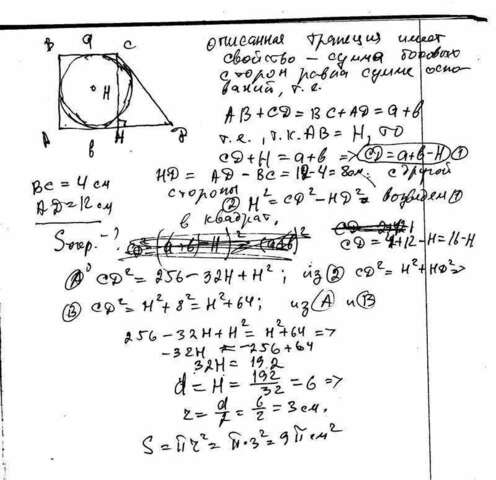 B a C
H
A H D
b
BC = 4 см
AD = 12 см
Sокр. - ?
описанная трапеция имеет
свойство - сумма боковых
сторон равна сумме осно-
ваний, т.е.
AB + CD = BC + AD = a + b
т.е., т.к. AB = H, то
CD + H = a + b => CD = a + b - H ①
HD = AD - BC = 12 - 4 = 8 см. с другой
стороны
② H² = CD² - HD² возведем ①
в квадрат,
CD = 4 + 12 - H = 16 - H
Ⓐ CD² = 256 - 32H + H²; из ② CD² = H² + HD² =>
Ⓑ CD² = H² + 8² = H² + 64; из Ⓐ и Ⓑ
256 - 32H + H² = H² + 64 =>
-32H = -256 + 64
32H = 192
d = H = 192/32 = 6 =>
r = d/2 = 6/2 = 3 см.
S = πr² = π·3² = 9π см²